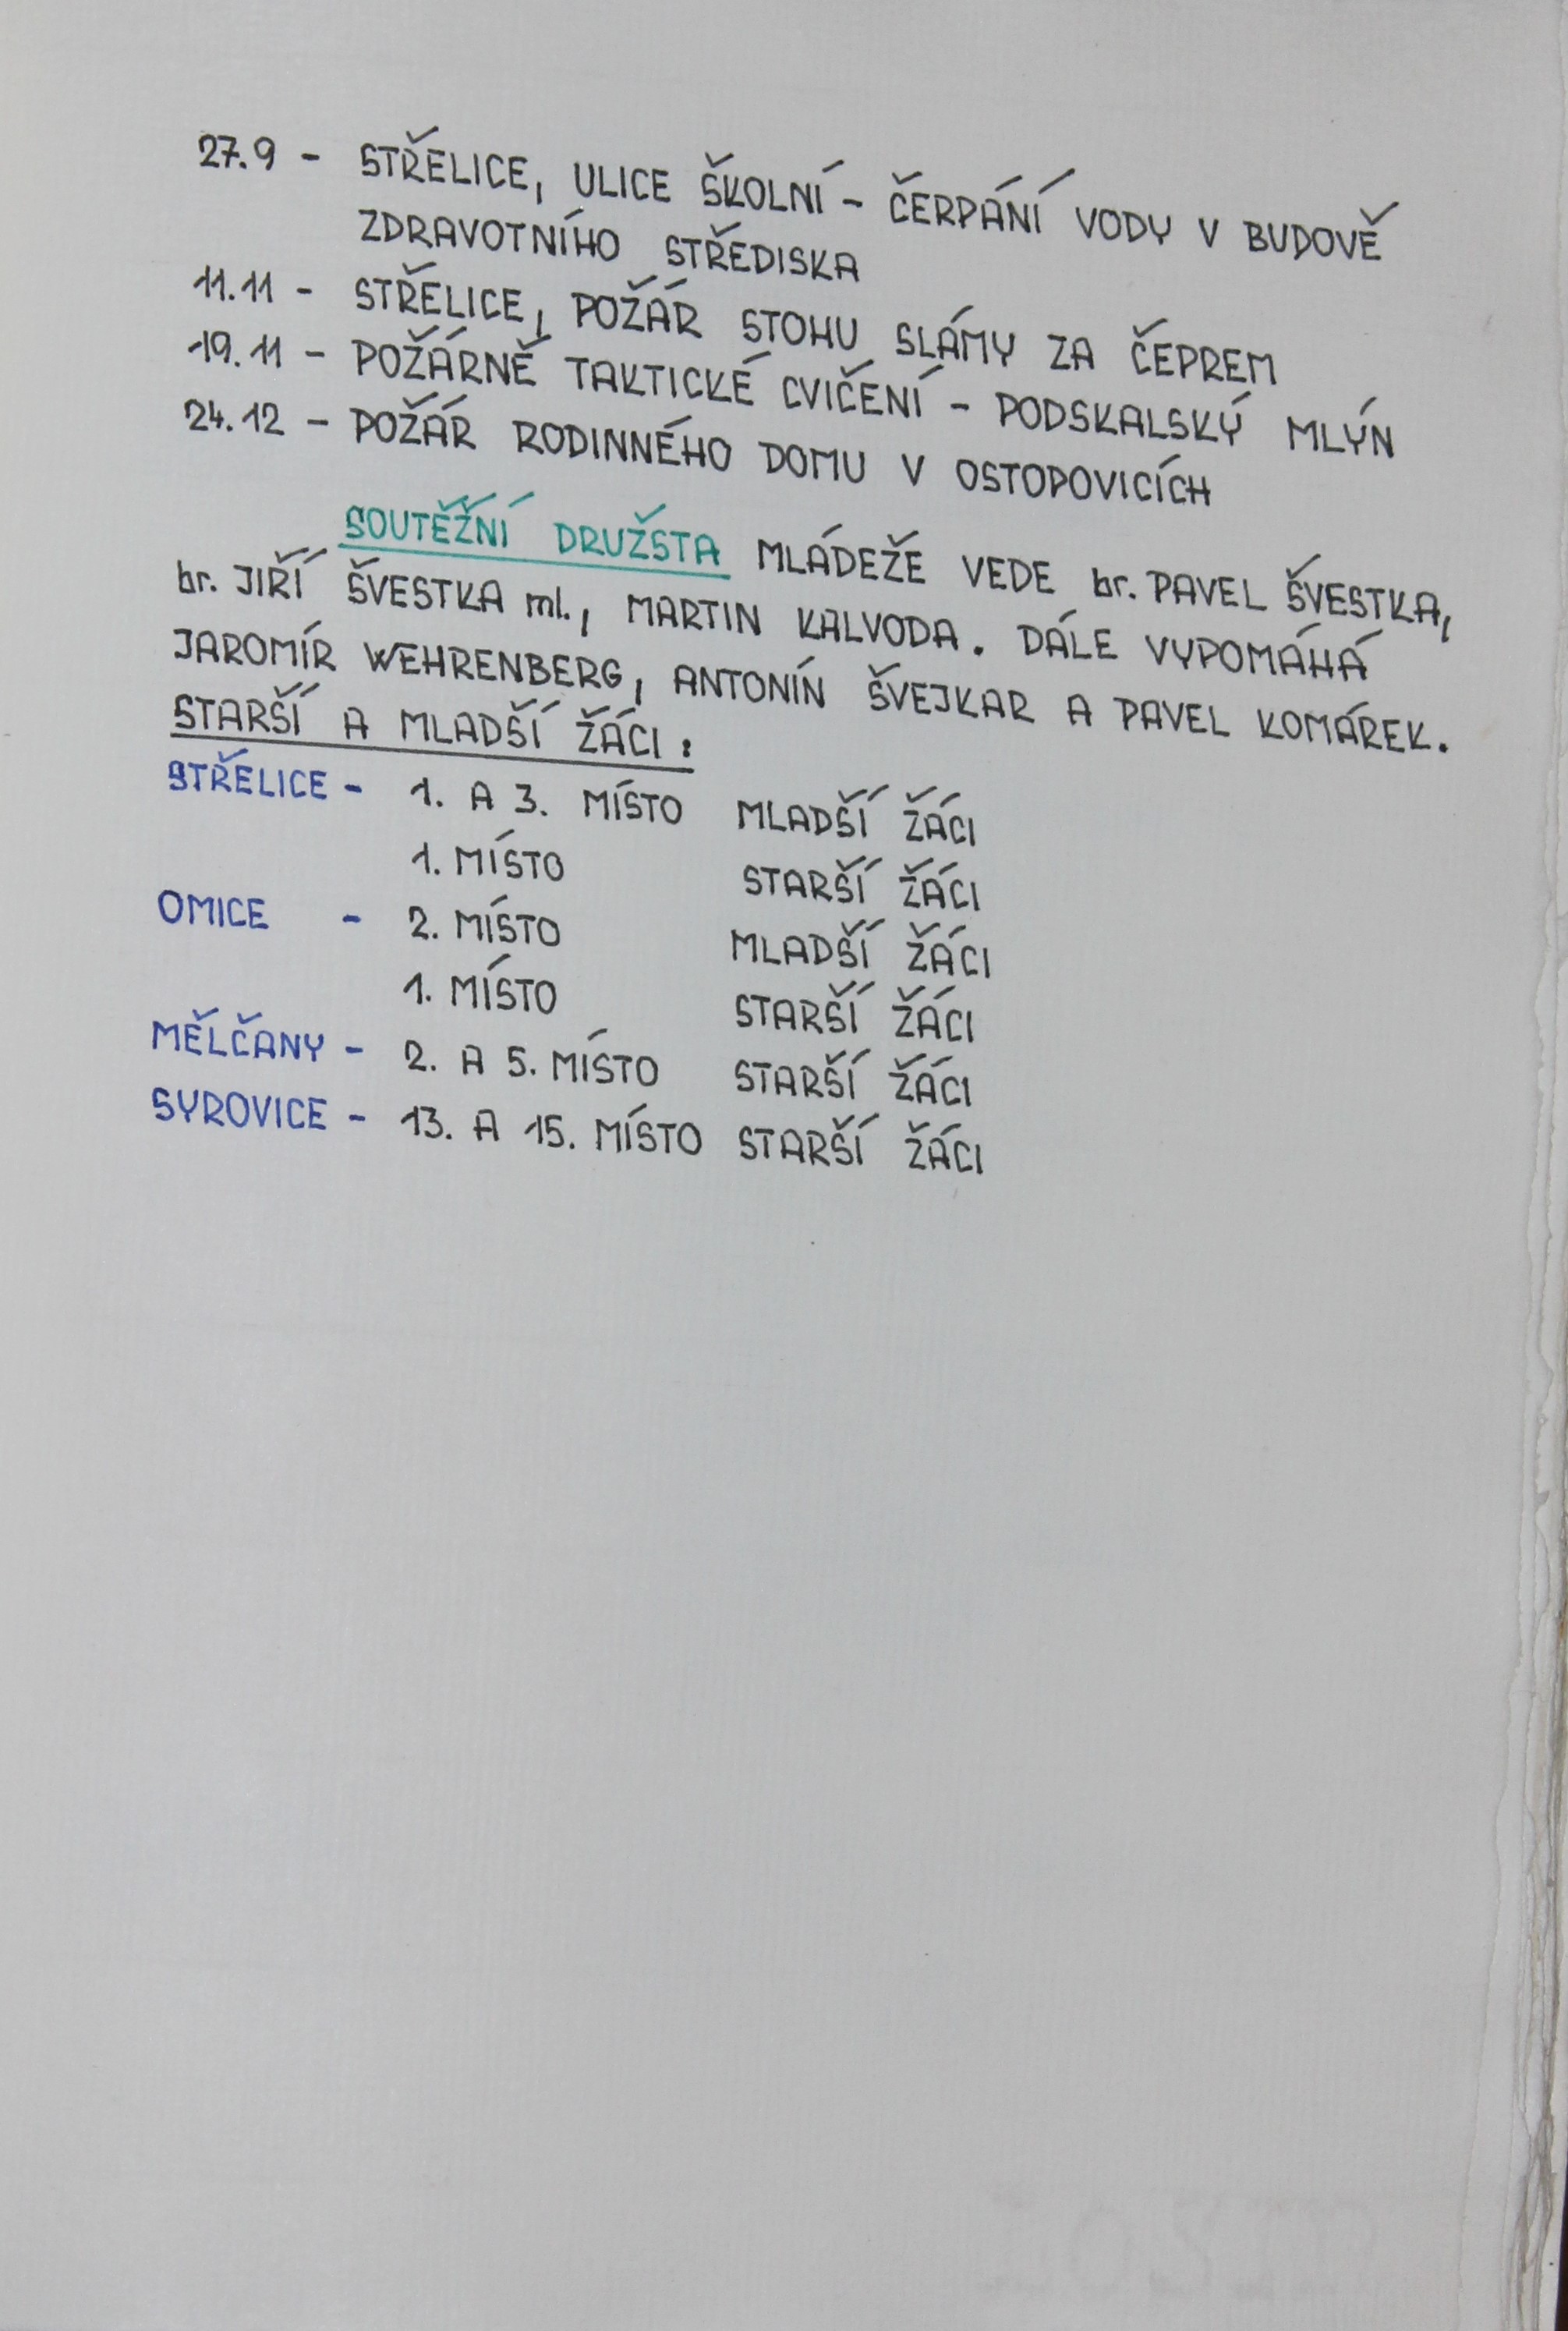 27.9 - STŘELICE, ULICE ŠKOLNÍ - ČERPÁNÍ VODY V BUDOVĚ
ZDRAVOTNÍHO STŘEDISKA
11.11 - STŘELICE, POŽÁR STOHU SLÁMY ZA ČEPREM
19.11 - POŽÁRNĚ TAKTICKÉ CVIČENÍ - PODSKALSKÝ MLÝN
24.12 - POŽÁR RODINNÉHO DOMU V OSTOPOVICÍCH
SOUTĚŽNÍ DRUŽSTA MLÁDEŽE VEDE br. PAVEL ŠVESTKA,
br. JIŘÍ ŠVESTKA ml., MARTIN KALVODA. DÁLE VYPOMÁHÁ
JAROMÍR WEHRENBERG, ANTONÍN ŠVEJKAR A PAVEL KOMÁREK.
STARŠÍ A MLADŠÍ ŽÁCI:
STŘELICE - 1. A 3. MÍSTO MLADŠÍ ŽÁCI
1. MÍSTO STARŠÍ ŽÁCI
OMICE - 2. MÍSTO MLADŠÍ ŽÁCI
1. MÍSTO STARŠÍ ŽÁCI
MĚLČANY - 2. A 5. MÍSTO STARŠÍ ŽÁCI
SYROVICE - 13. A 15. MÍSTO STARŠÍ ŽÁCI